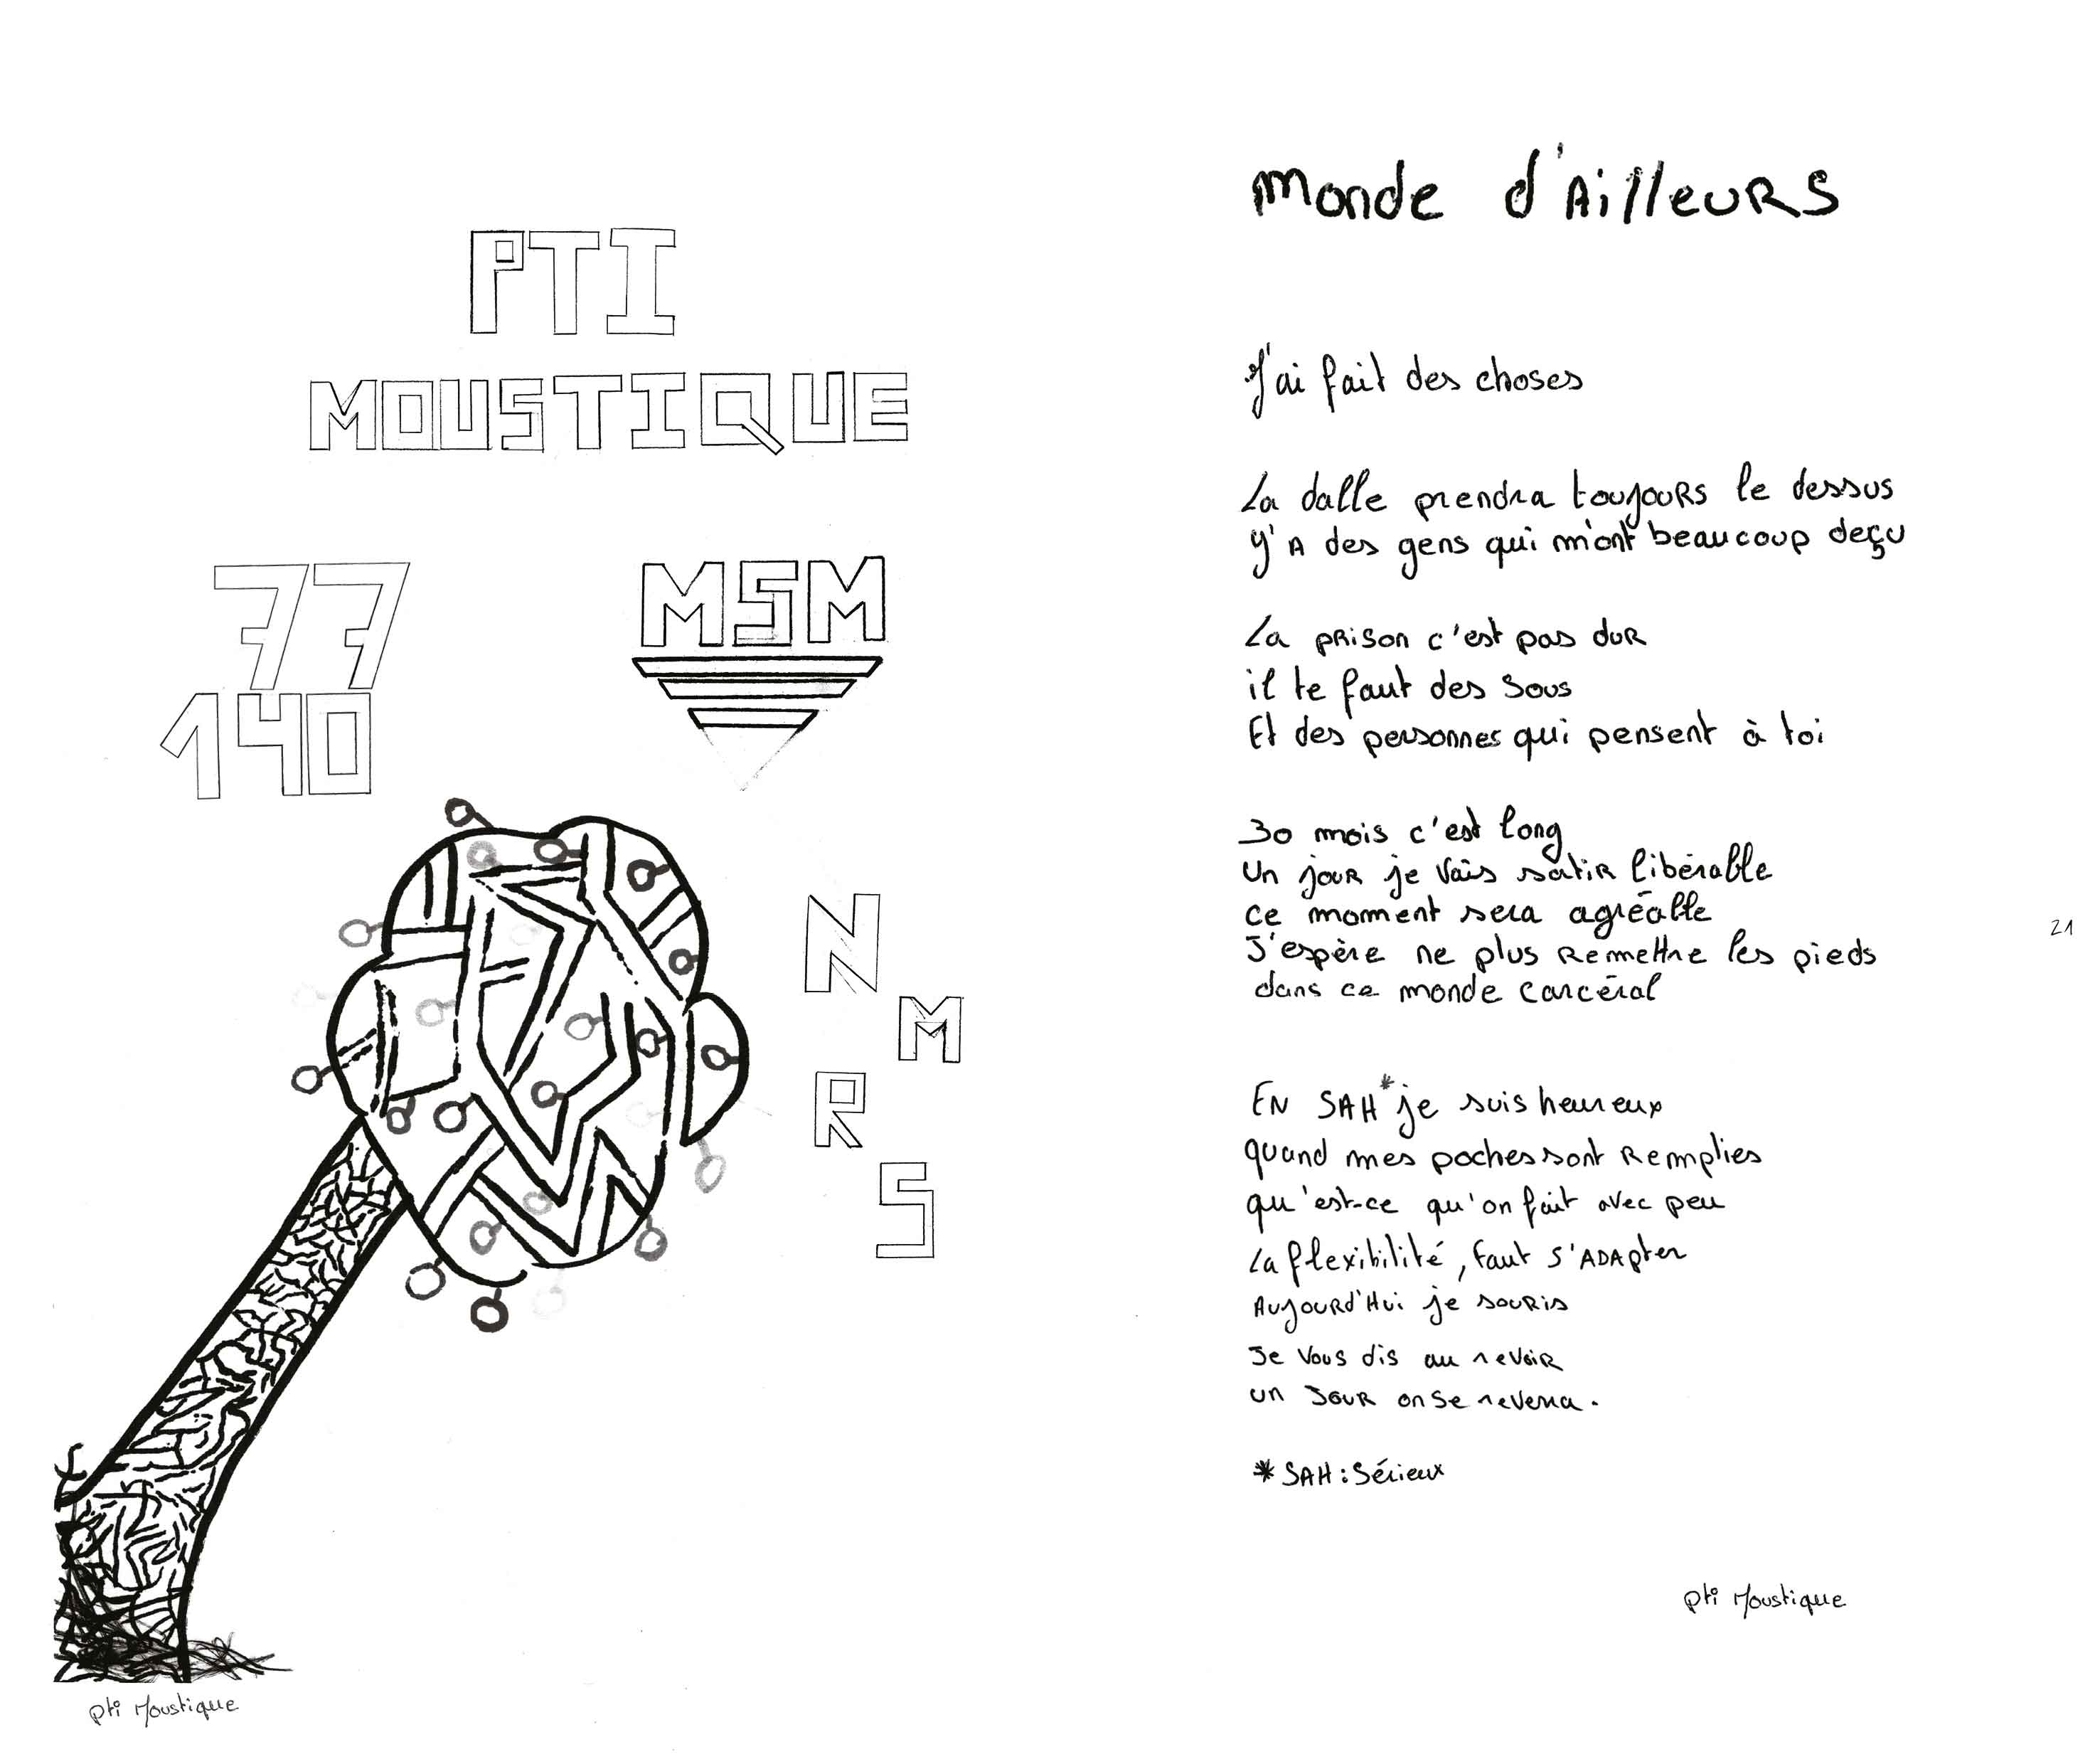 PTI
MOUSTIQUE
77
140
MSM
N
M
R
S
Pti Moustique
Monde d'Ailleurs
J'ai fait des choses
La dalle prendra toujours le dessus
Y'A des gens qui m'ont beaucoup deçu
La prison c'est pas dur
il te faut des sous
Et des personnes qui pensent à toi
30 mois c'est long
Un jour je vais sortir libérable
ce moment sera agréable
J'espère ne plus remettre les pieds
dans ce monde carcéral
EN SAH* je suis heureux
quand mes poches sont remplies
qu'est-ce qu'on fait avec peu
La flexibilité, faut s'ADApter
Aujourd'Hui je souris
Je vous dis au revoir
un jour on se reverra.
* SAH : Sérieux
Pti Moustique
21